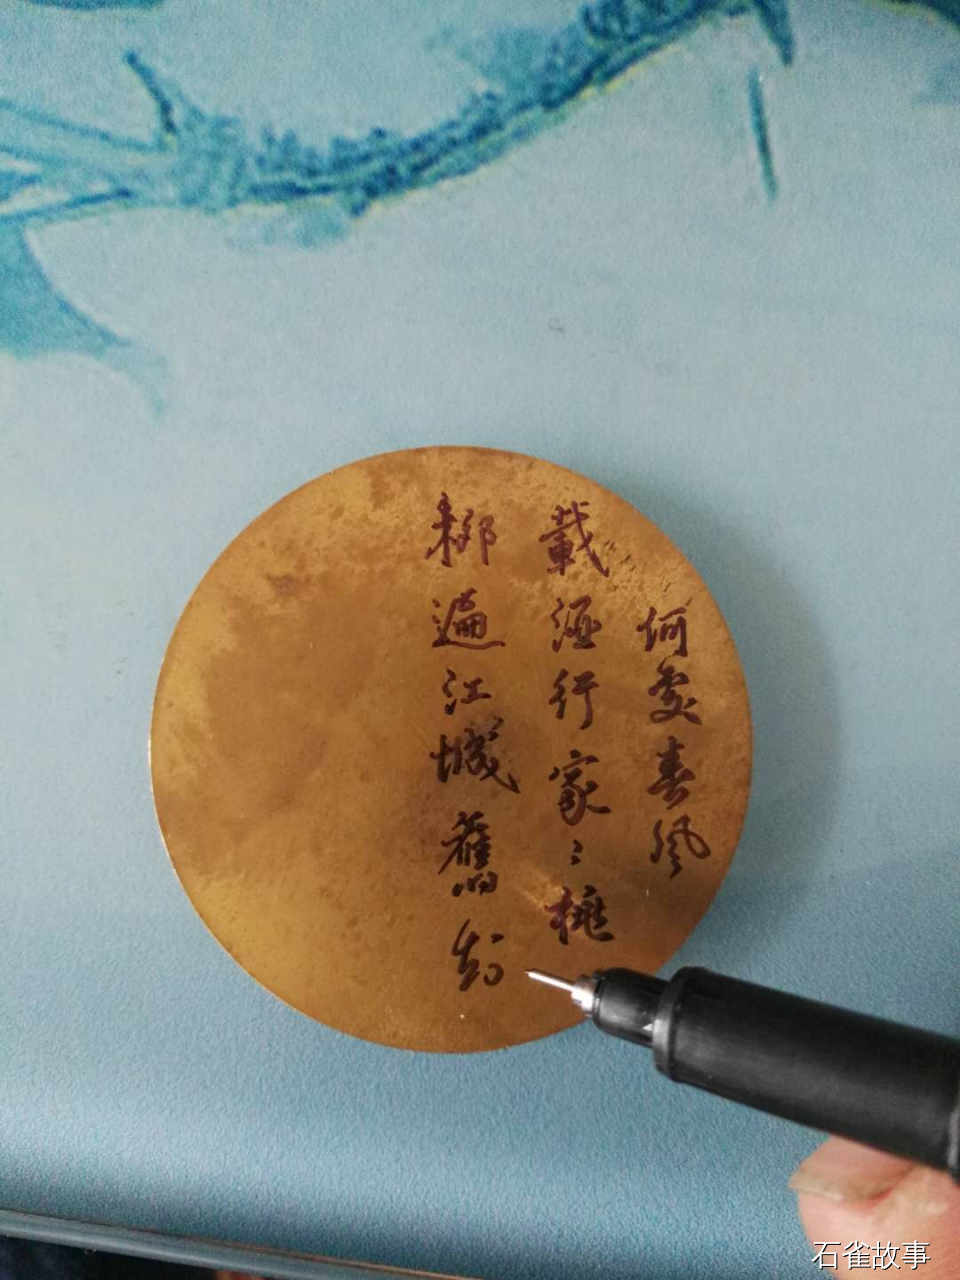 何處春風
載酒行家〻桃
柳遍江城舊
石雀故事